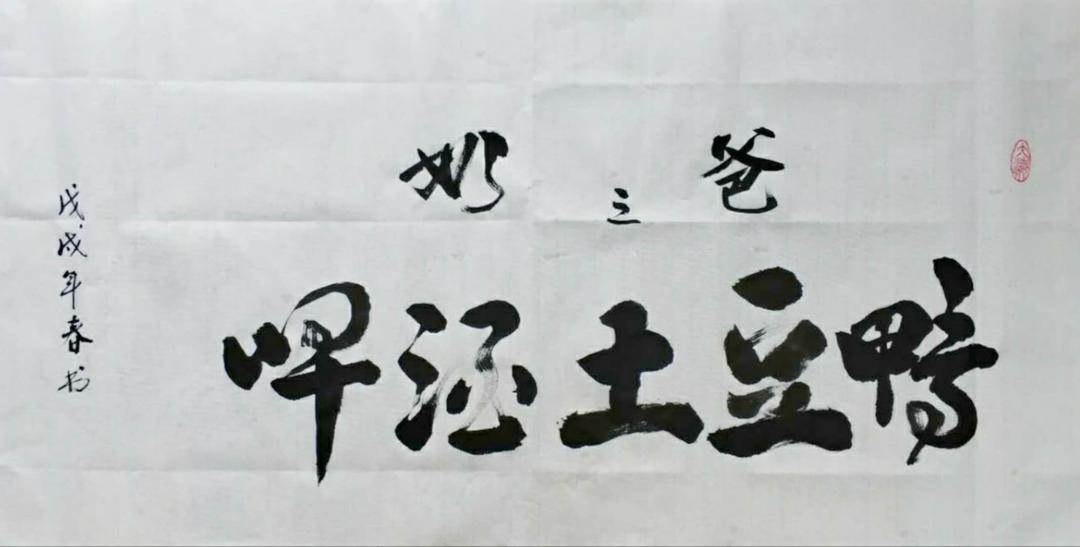 奶之爸
啤酒土豆鸭
戊戌年春书